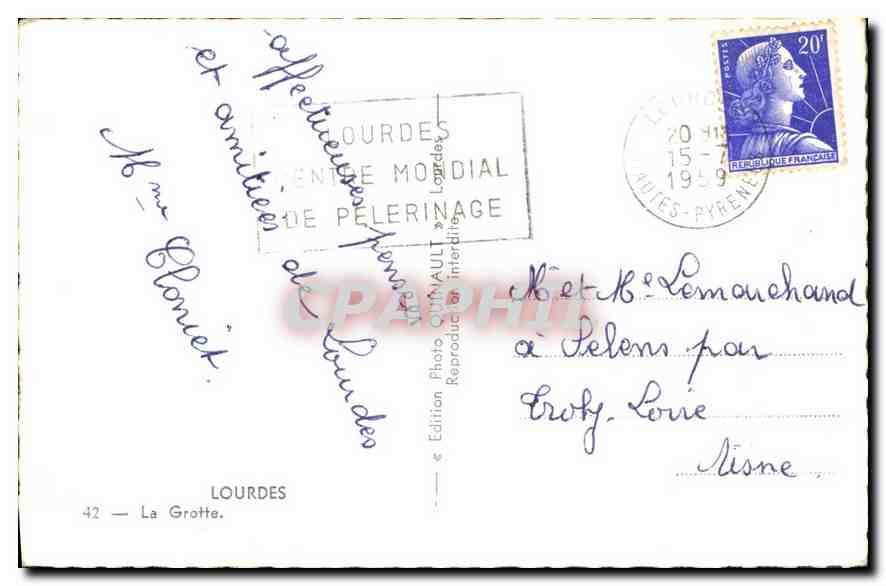 affectueuses pensées
et amitiées de Lourdes
Mme Cloniet.
LOURDES
CENTRE MONDIAL
DE PÈLERINAGE
LOURDES
20 H
15-7
1959
HAUTES-PYRENEES
POSTES
20F
REPUBLIQUE FRANÇAISE
« Edition Photo QUINAULT » Lourdes
Reproduction interdite
CPAPHIL
Mr et Me Lemarchand
à Selens par
Trosly-Loire
Aisne
LOURDES
42 — La Grotte.